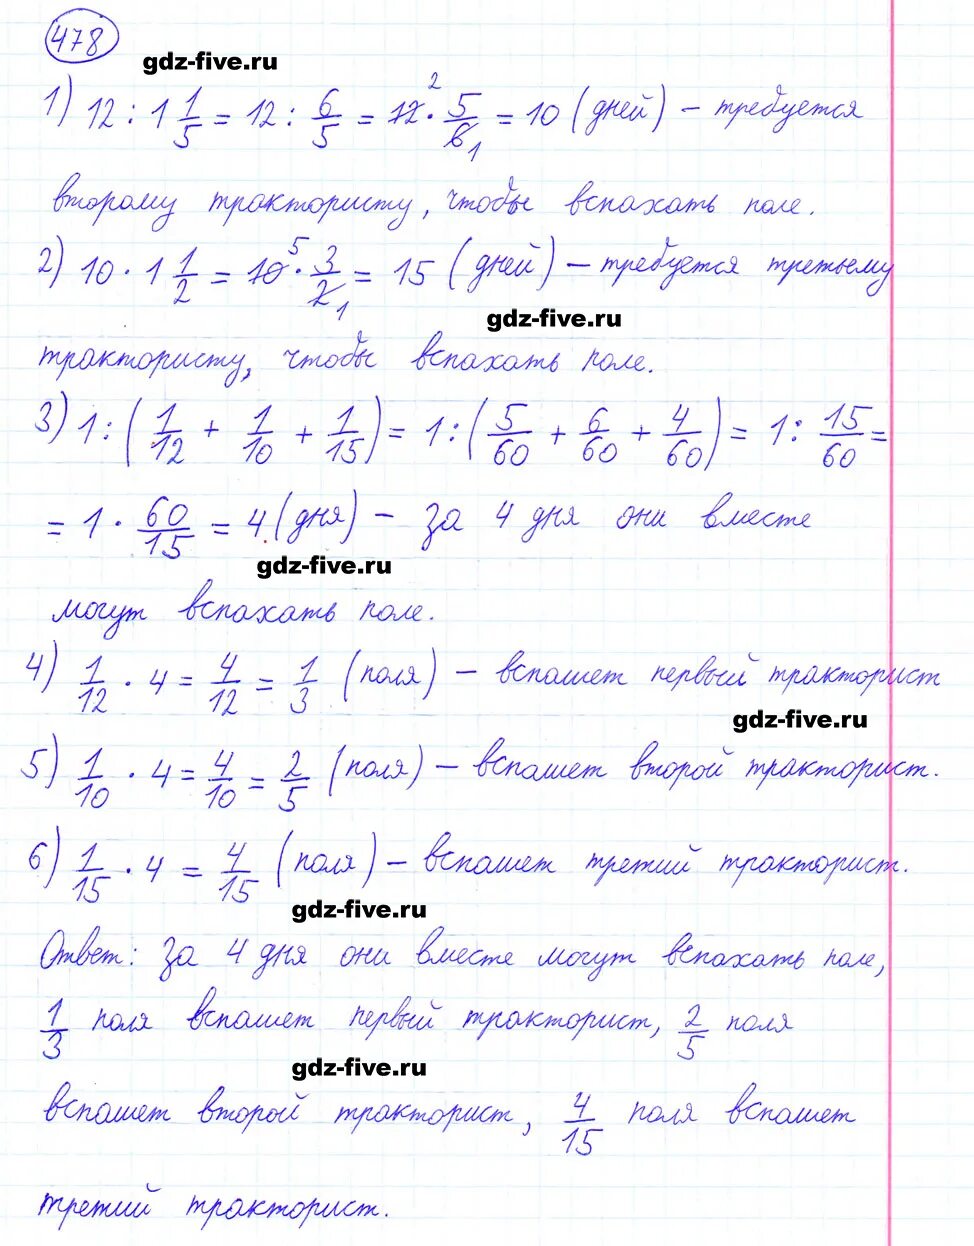 478
gdz-five.ru
1) 12 : 1 1/5 = 12 : 6/5 = 12² · 5/6₁ = 10 (дней) – требуется
второму трактористу, чтобы вспахать поле.
2) 10 · 1 1/2 = 10⁵ · 3/2₁ = 15 (дней) – требуется третьему
gdz-five.ru
трактористу, чтобы вспахать поле.
3) 1 : (1/12 + 1/10 + 1/15) = 1 : (5/60 + 6/60 + 4/60) = 1 : 15/60 =
= 1 · 60/15 = 4 (дня) – за 4 дня они вместе
gdz-five.ru
могут вспахать поле.
4) 1/12 · 4 = 4/12 = 1/3 (поля) – вспашет первый тракторист
gdz-five.ru
5) 1/10 · 4 = 4/10 = 2/5 (поля) – вспашет второй тракторист.
6) 1/15 · 4 = 4/15 (поля) – вспашет третий тракторист.
gdz-five.ru
Ответ: за 4 дня они вместе могут вспахать поле,
1/3 поля вспашет первый тракторист, 2/5 поля
gdz-five.ru
вспашет второй тракторист, 4/15 поля вспашет
третий тракторист.